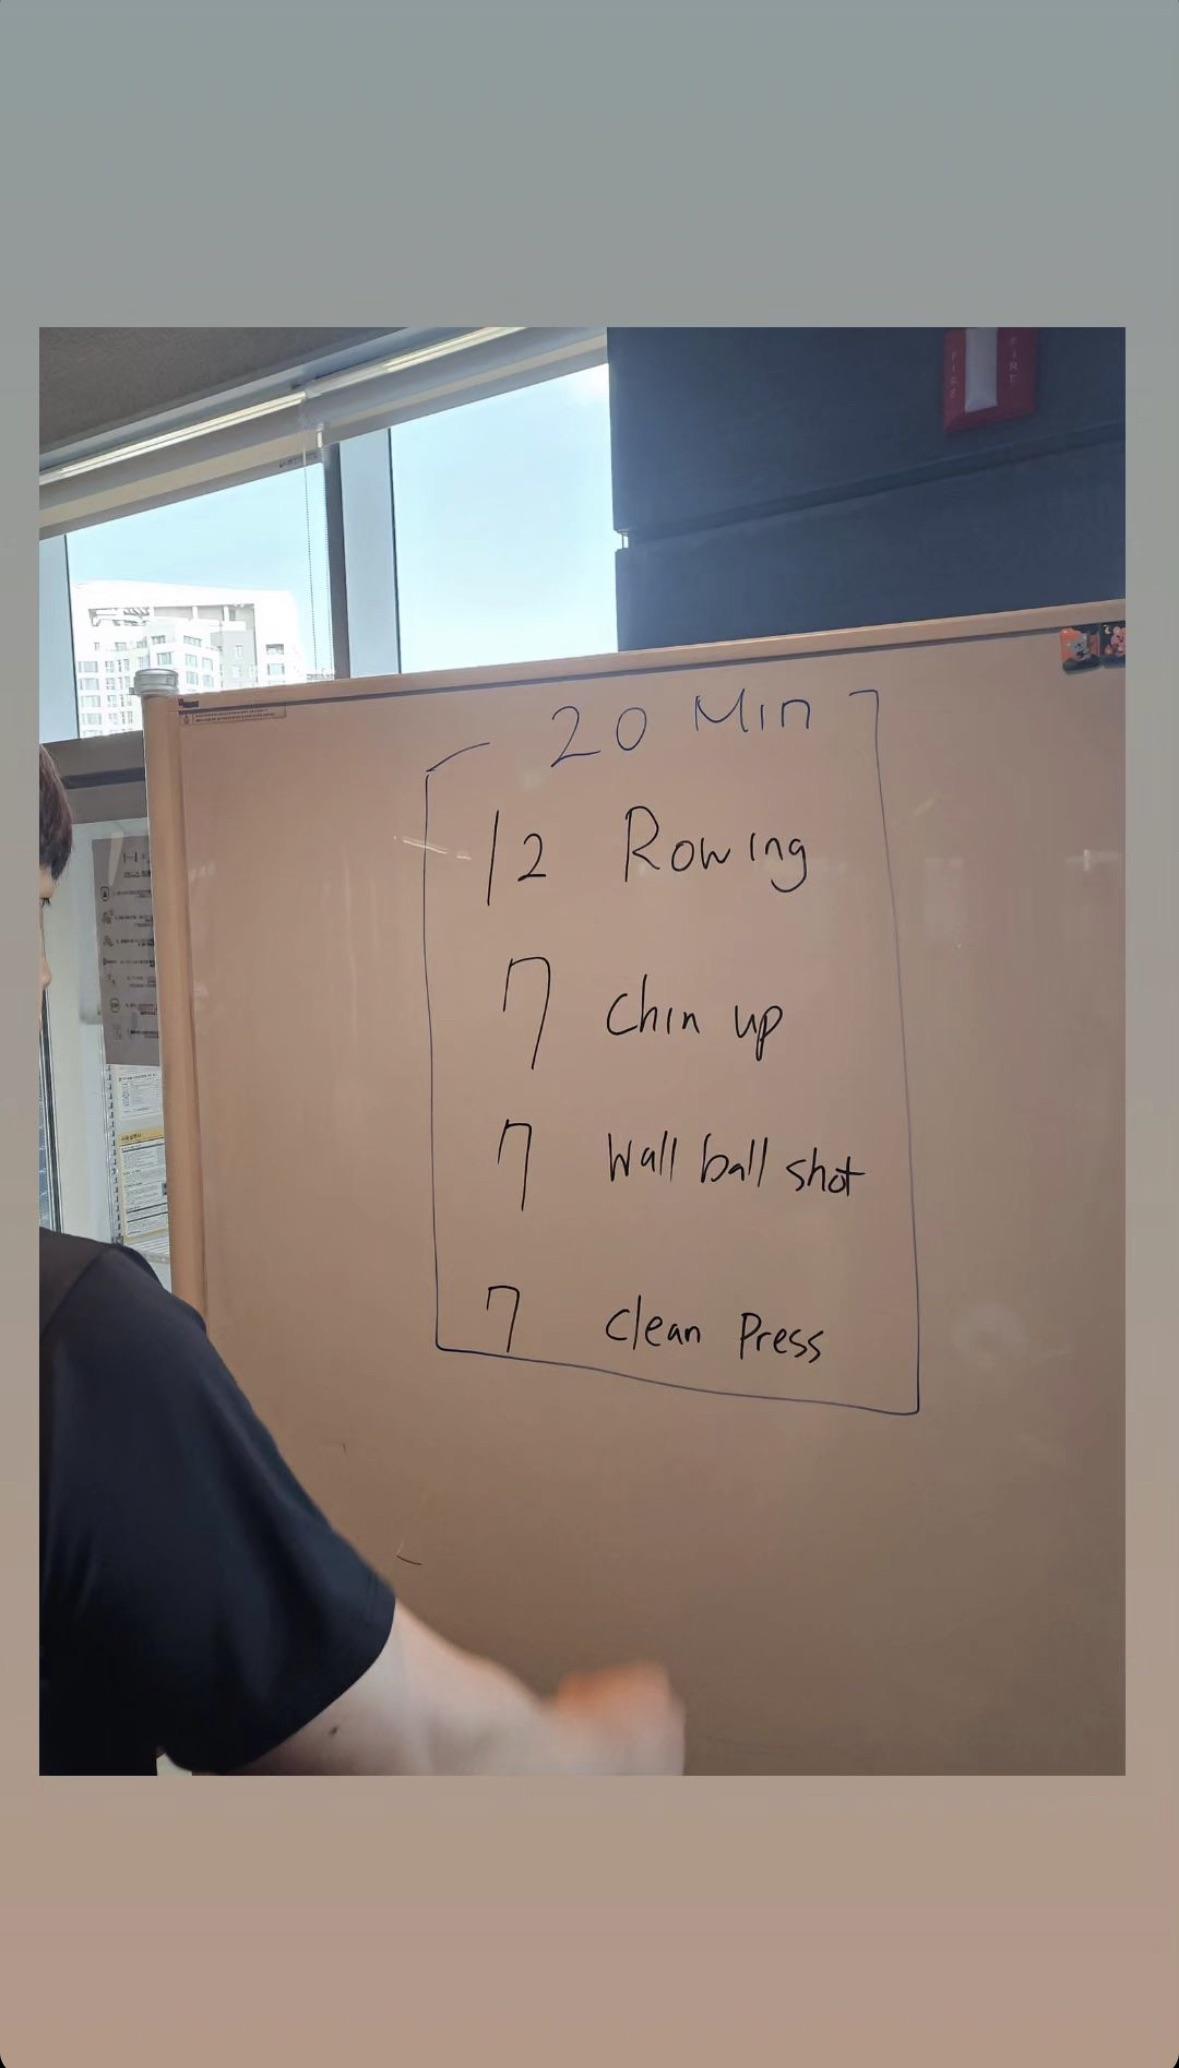 FIRE
FIRE
20 Min
12 Rowing
7 Chin up
7 Wall ball shot
7 Clean Press